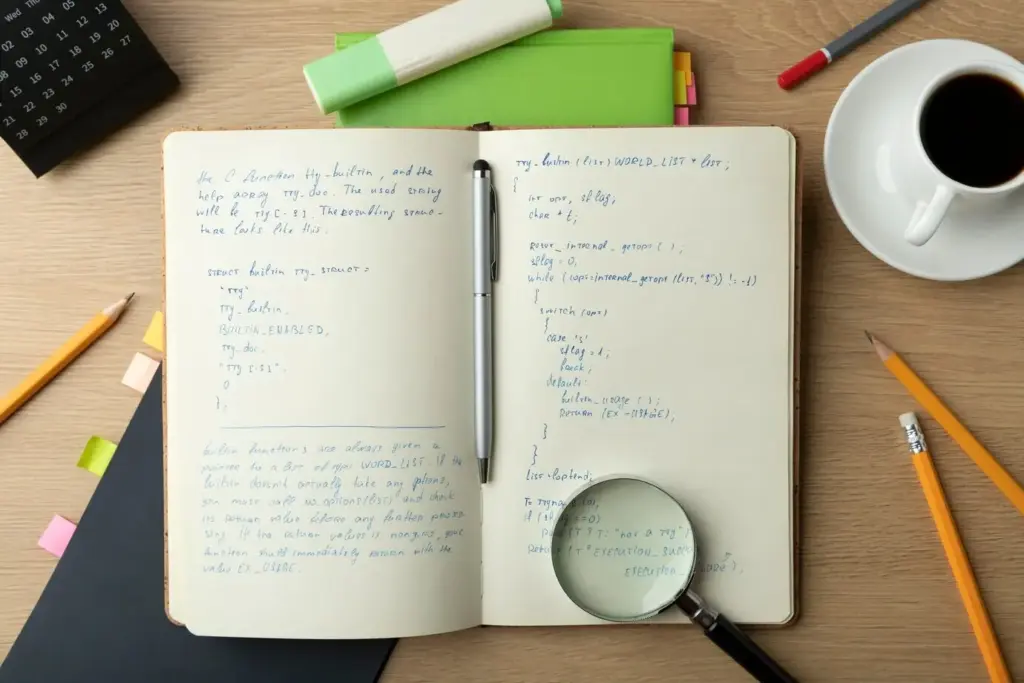 Wed Thu
02 03 04 05
08 09 10 11 12 13
15 16 17 18 19 20
21 22 23 24 25 26 27
28 29 30
the C function tty_builtin, and the
help array tty_doc. The used string
will be tty [-s]. The resulting struc-
ture looks like this:
STRUCT builtin tty_STRUCT =
"tty"
tty_builtin.
BUILTIN_ENABLED,
tty_doc.
"tty [-s]".
0
};
builtin functions are always given a
pointer to a list of type WORD_LIST. If the
builtin doesn't actually take any options,
you must call no_options(list) and check
its return value before any further proces-
sing. If the return value is non-zero, your
function should immediately return with the
value EX_USAGE.
tty_builtin (list) WORLD_LIST * list;
{
int opt, sflag,
char * t;
reset_internal_getopt ( );
sflag = 0,
while ((opt=internal_getopt (list, "s")) != -1)
{
switch (opt)
{
case 's'
sflag = 1;
break,
default:
builtin_usage ( );
RETURN (EX_USAGE);
}
}
list = loptend;
if (sflag ==0)
"not a tty"
EXECUTION_
EXECUTION_